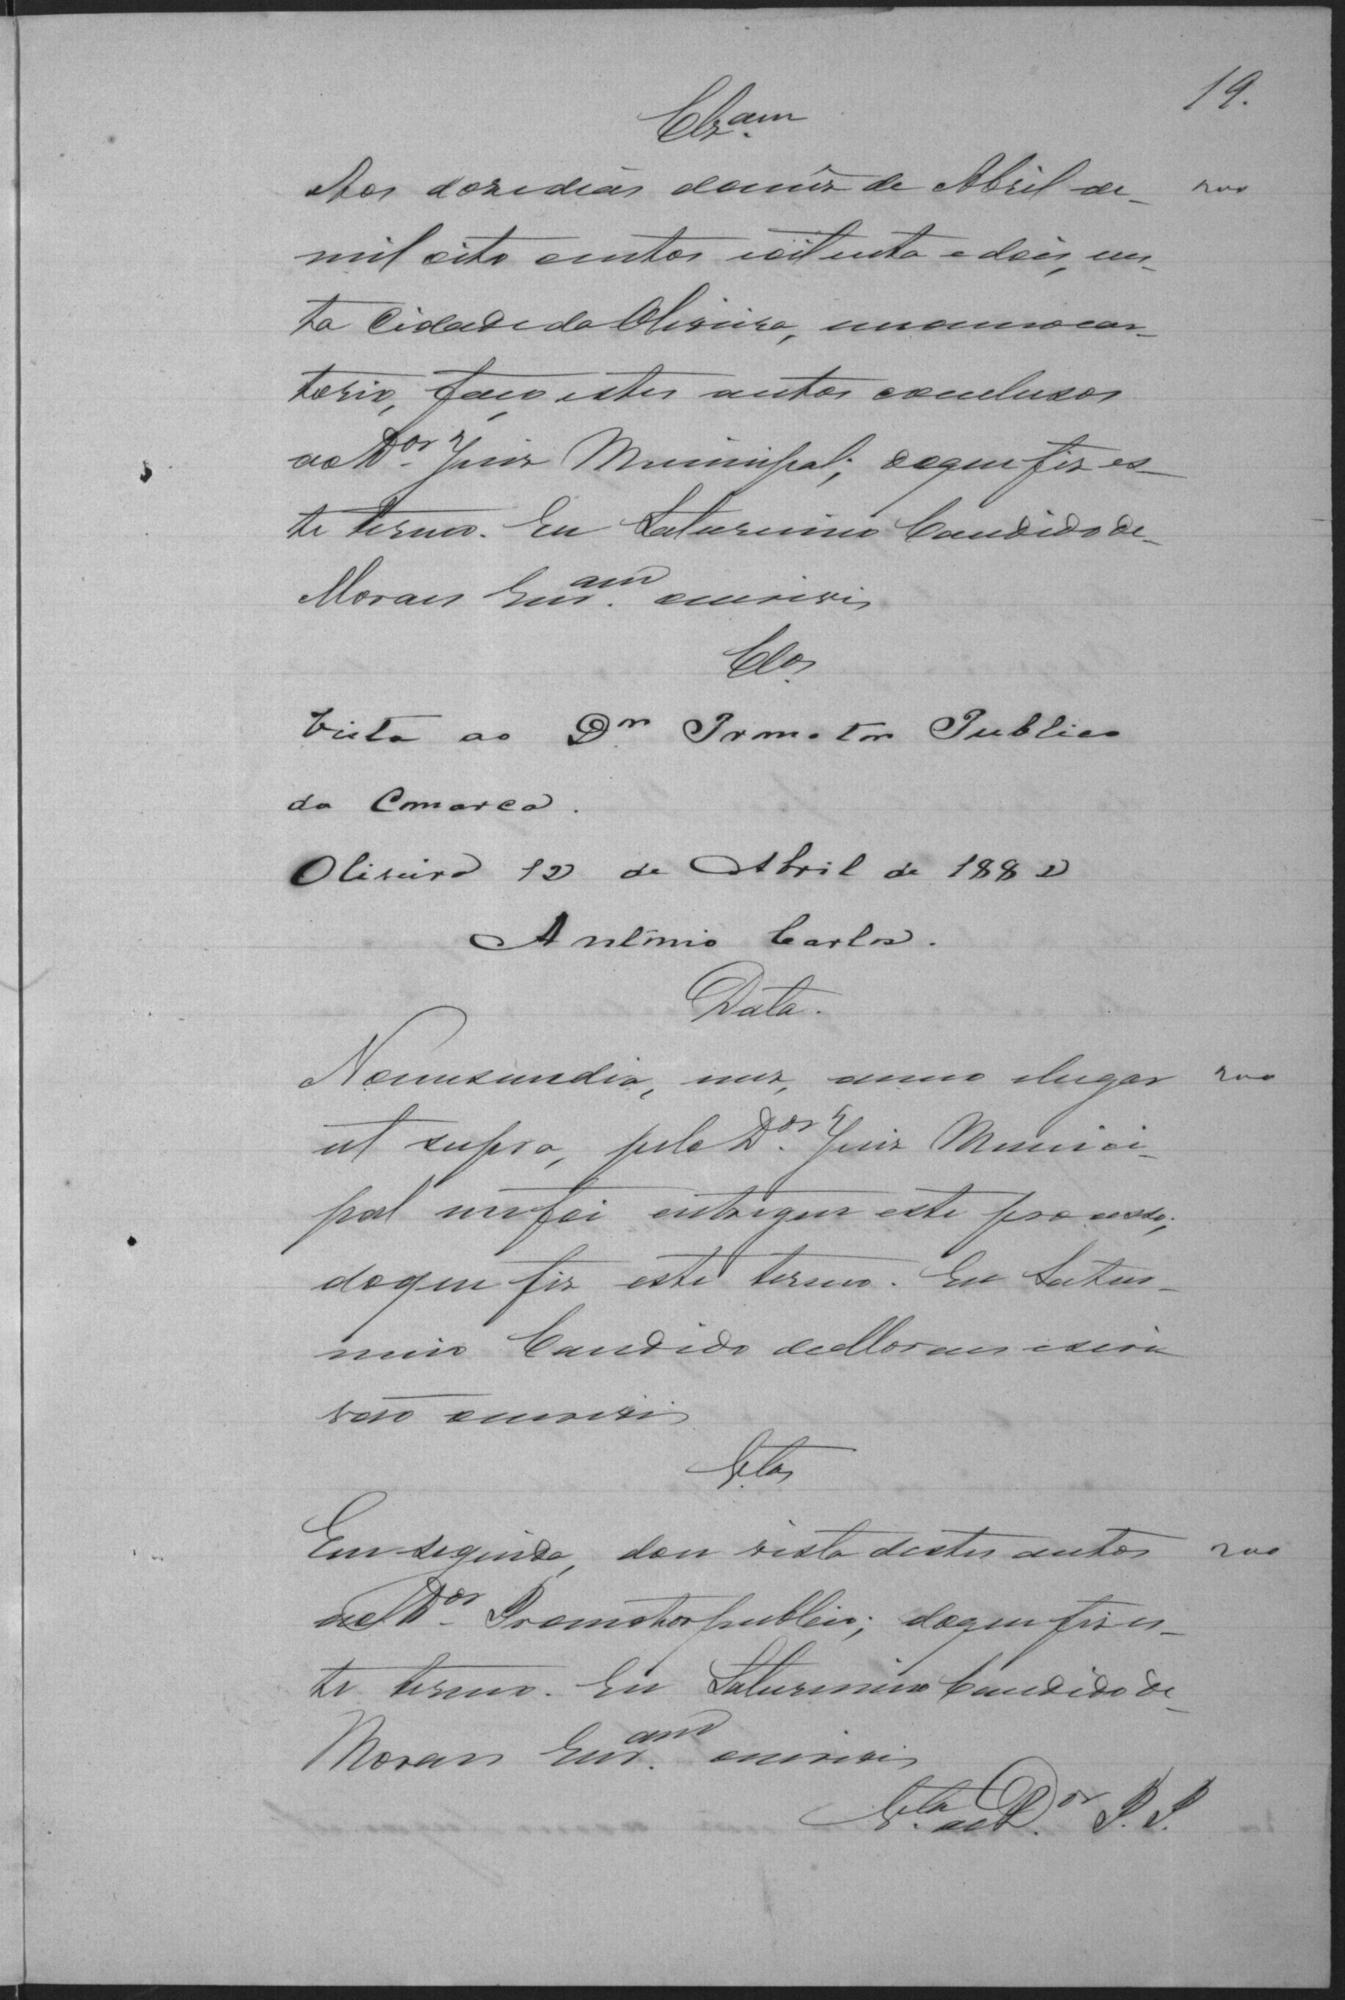 19.
Clz.am
Aos doze dias do mez de Abril de 200
mil oito centos eoitenta e dois, nes-
ta Cidade da Oliveira, em meu car-
torio, faço estes autos conclusos
ao Dor. Juiz Municipal; do que fiz es-
te termo. Eu Saturnino Candido de
Moraes Escr.am escrevi
Clos
Vista ao Dr. Promotor Publico
da Comarca.
Oliveira 12 de Abril de 1882
Antônio Carlos.
Data.
No mesmo dia, mez, anno e lugar 200
ut supra, pelo Dor. Juiz Munici-
pal me foi entregue este processo;
do que fiz este termo. Eu Satur-
nino Candido de Moraes escri
vão escrevi
Vtas
Em seguida, dou vista destes autos 200
ao Dor. Promotor publico; do que fiz es-
te termo. Eu Saturnino Candido de
Moraes Escr.am escrevi
V.ta ao Dor. P. P.